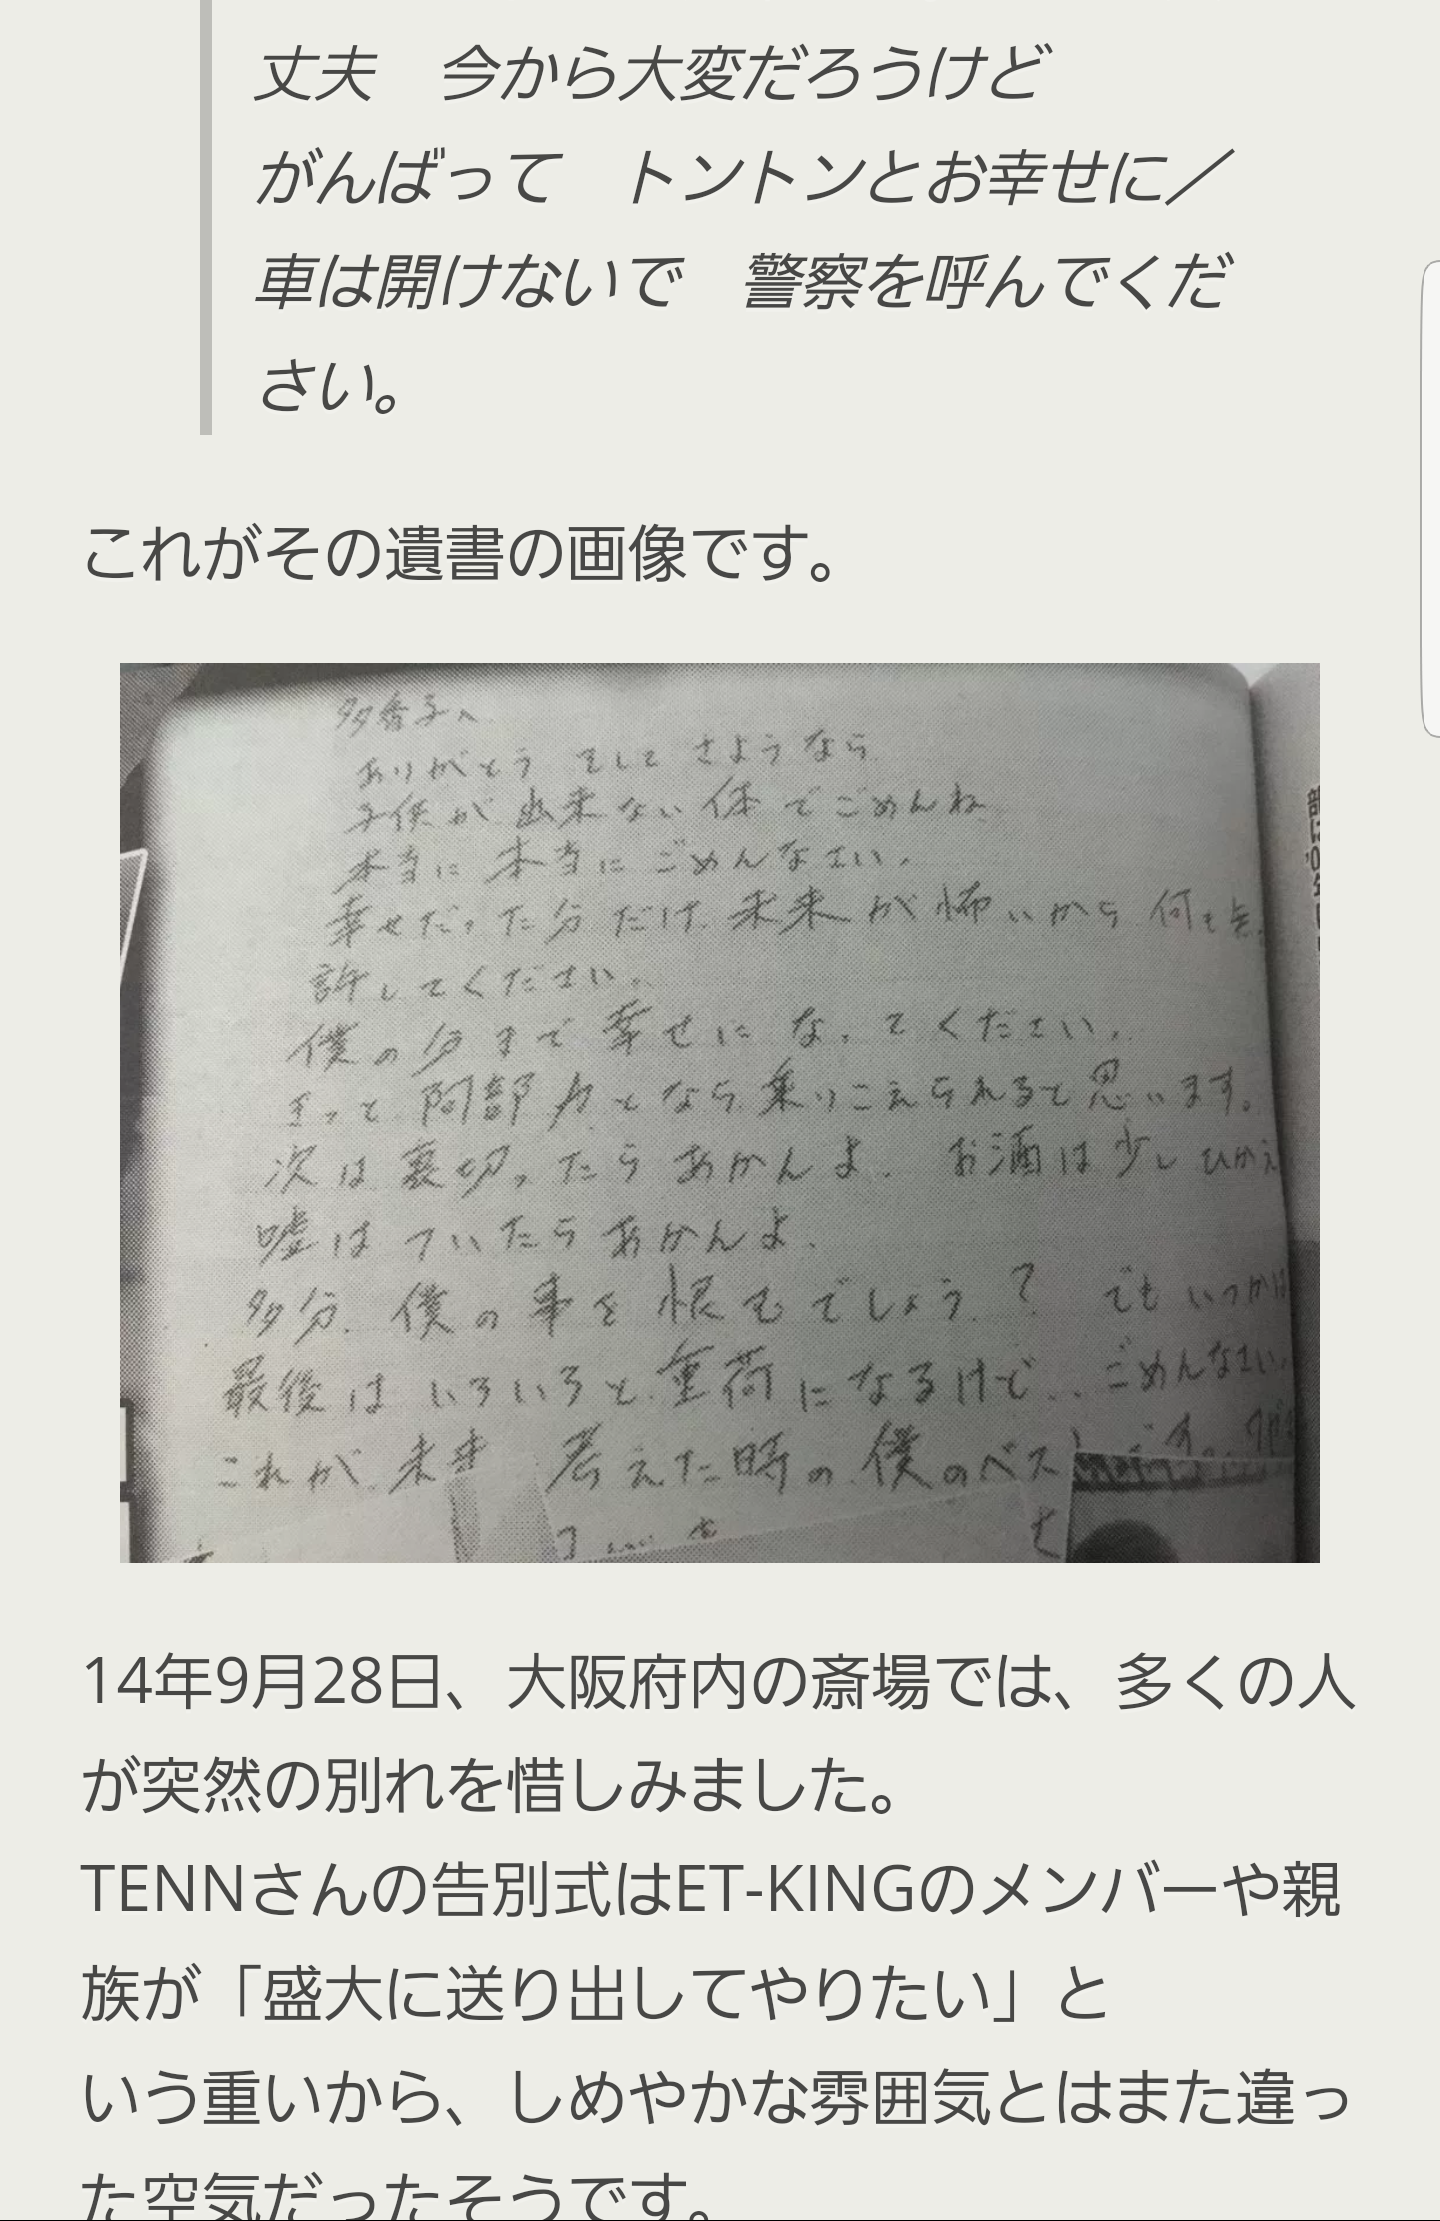 丈夫　今から大変だろうけど
がんばって　トントンとお幸せに／
車は開けないで　警察を呼んでくだ
さい。
これがその遺書の画像です。
多香子へ
ありがとう そして さようなら
子供が出来ない体でごめんね
本当に 本当に ごめんなさい.
幸せだった分だけ 未来が怖いから 何も
許してください.
僕の分まで幸せになってください.
きっと 阿部力となら乗りこえられると思います。
次は裏切ったらあかんよ. お酒は少しひかえ
嘘はついたらあかんよ.
多分. 僕の事を恨むでしょう? でもいつか
最後はいろいろと重荷になるけど.. ごめんなさい.
これが 未来 考えた時の僕のベスト です。
14年9月28日、大阪府内の斎場では、多くの人
が突然の別れを惜しみました。
TENNさんの告別式はET-KINGのメンバーや親
族が「盛大に送り出してやりたい」と
いう重いから、しめやかな雰囲気とはまた違っ
た空気だったそうです。